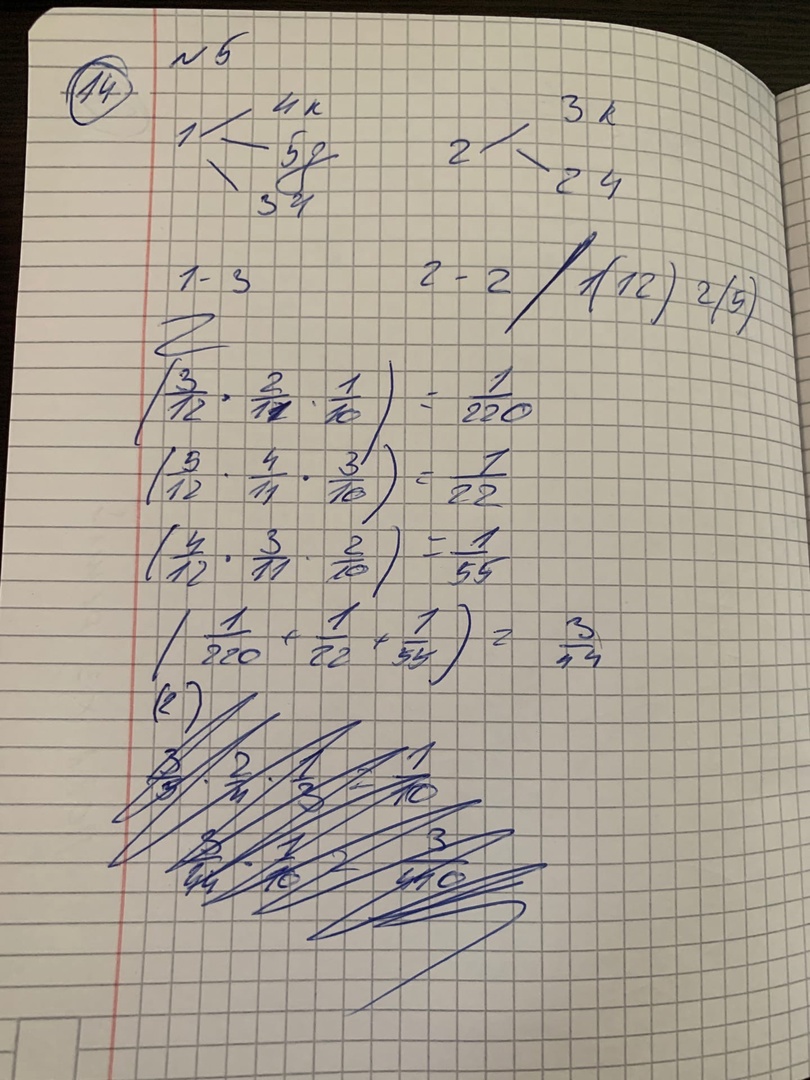 14
№ 5
1 4к 5g 3ч
2 3к 2ч
1 - 3 2 - 2 / 1(12) 2(5)
(3/12 · 2/11 · 1/10) = 1/220
(5/12 · 4/11 · 3/10) = 1/22
(4/12 · 3/11 · 2/10) = 1/55
(1/220 + 1/22 + 1/55) = 3/44
(2)
3/5 · 2/4 · 1/3 = 1/10
3/44 · 1/10 = 3/440